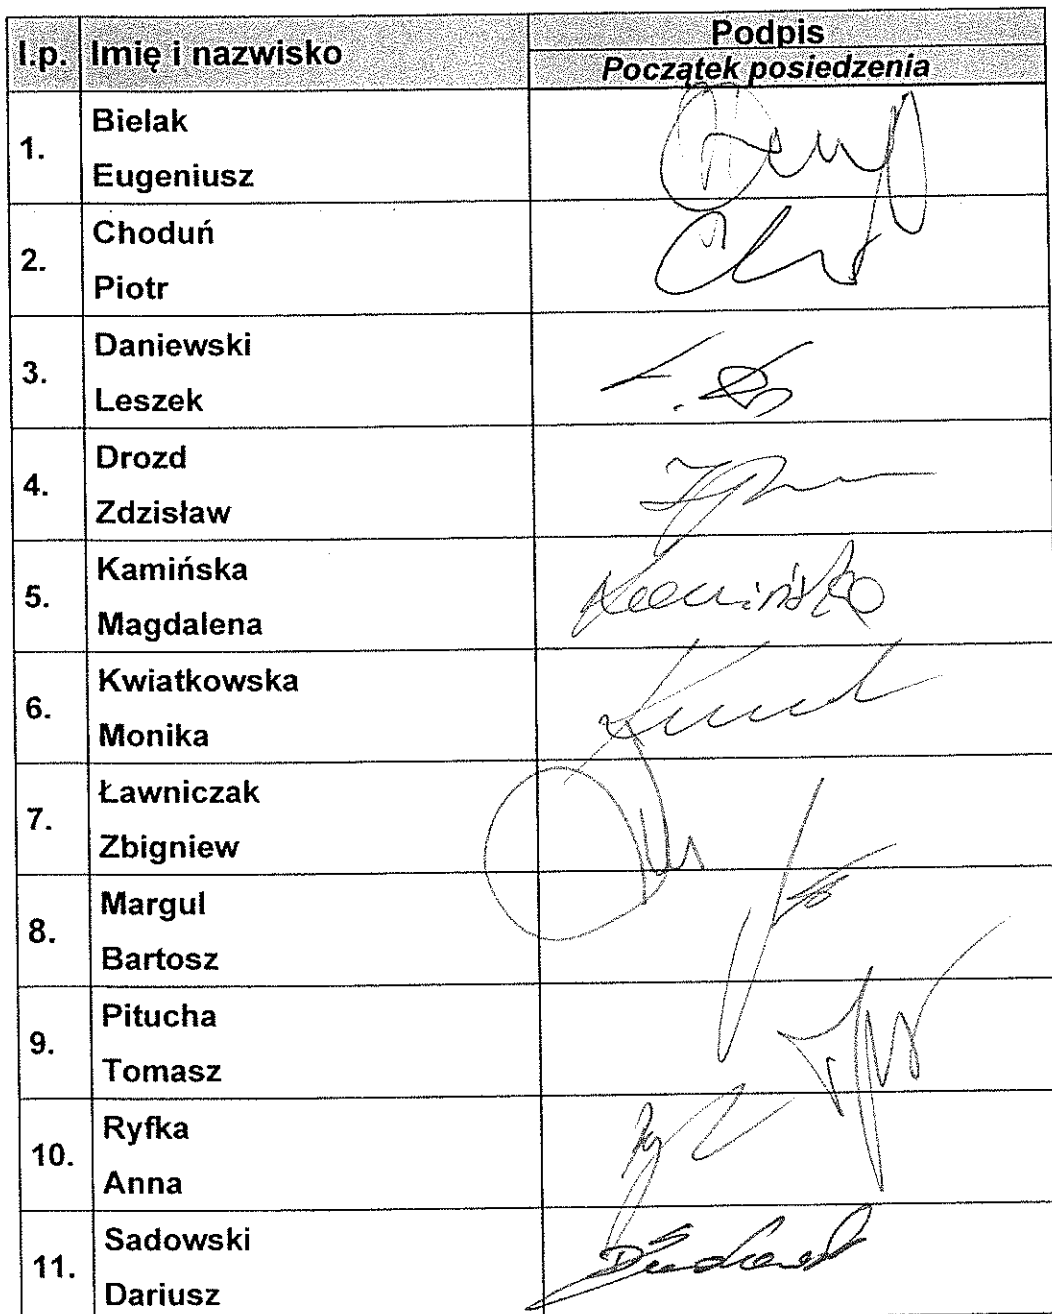 l.p. Imię i nazwisko Podpis
Początek posiedzenia
1. Bielak
Eugeniusz
2. Choduń
Piotr
3. Daniewski
Leszek
4. Drozd
Zdzisław
5. Kamińska
Magdalena
Kamińska
6. Kwiatkowska
Monika
7. Ławniczak
Zbigniew
8. Margul
Bartosz
9. Pitucha
Tomasz
10. Ryfka
Anna
11. Sadowski
Dariusz